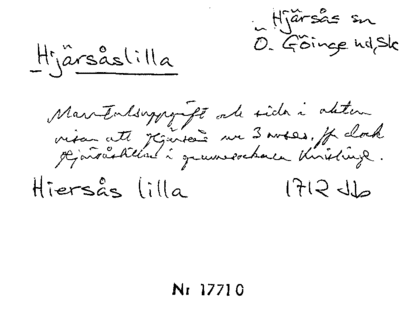 Hjärsås sn
Ö. Göinge hd, Sk
Hjärsåslilla
Mantalsuppgift och sida i akten
visar att Hjärsås nr 3 avses. Jfr dock
Hjärsåslilla i grannsocknen Knislinge.
Hiersås lilla 1712 Jb
Nr 17710